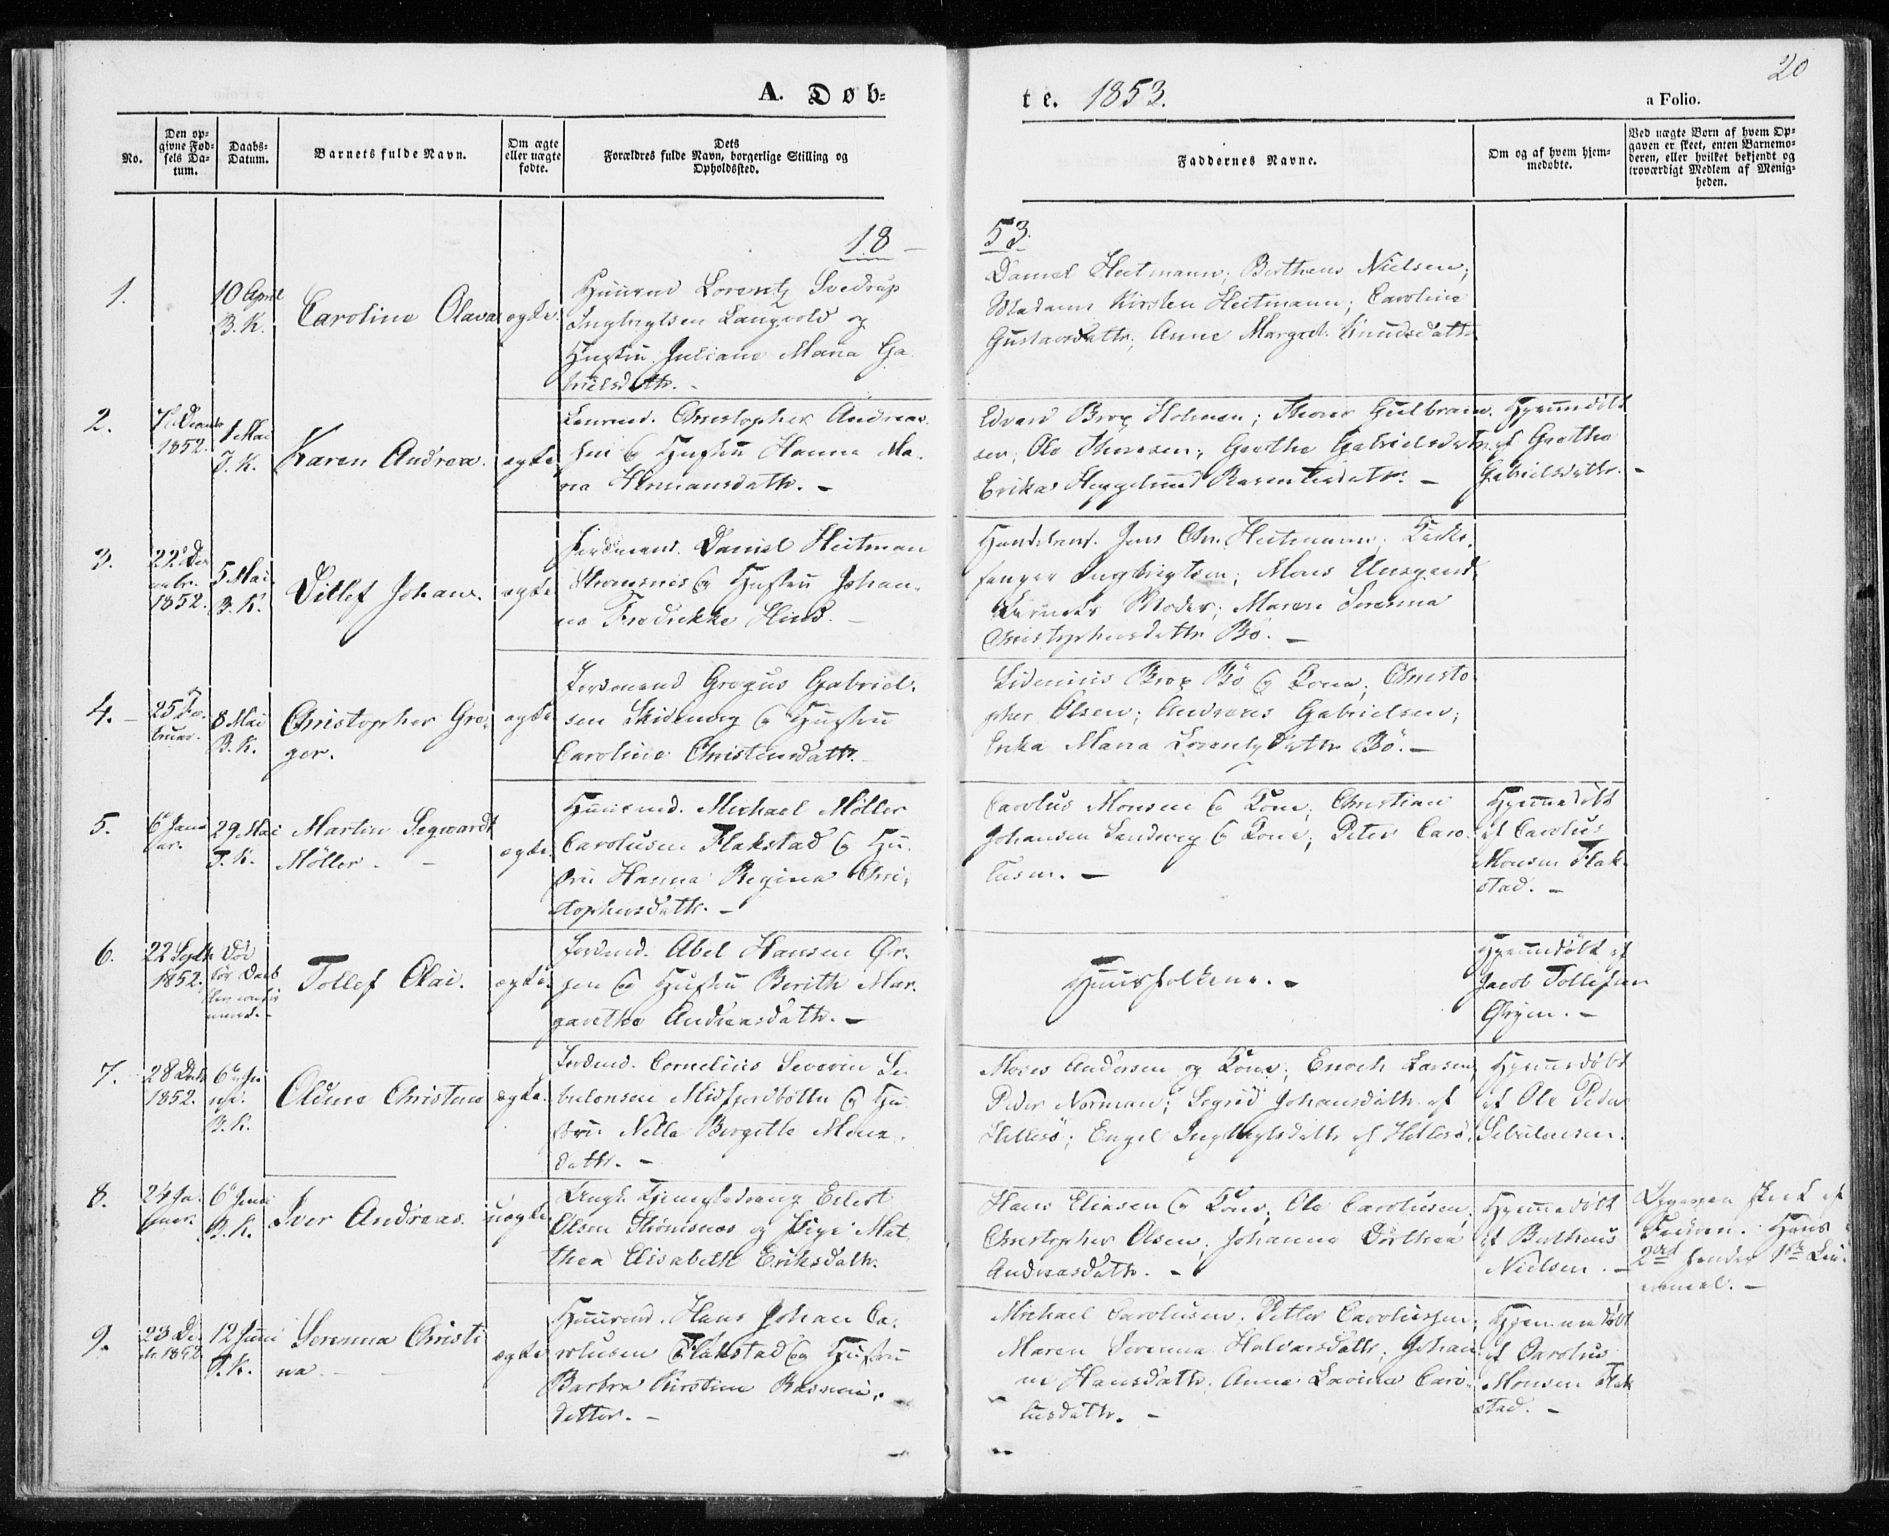 20
A. Døb=
te. 1853.
a Folio.
No.
Den op=
givne Fød=
sels Da=
tum.
Daabs=
Datum.
Barnets fulde Navn.
Om ægte
eller uægte
fødte.
Dets
Forældres fulde Navn, borgerlige Stilling og
Opholdssted.
Faddernes Navne.
Om og af hvem hjem=
medøbte.
Ved uægte Børn af hvem Op=
gaven er skeet, enten Barnemo=
deren, eller hvilket bekjendt og
troværdigt Medlem af Menig=
heden.
18 53.
1.
10 April
B. K.
Caroline Olava
ægte.
Huusmd Lorentz Svedrup
Ingbrigtsen Langvold og
Hustru Juliane Maria Ga
brielsdattr. -
Daniel Heitmann, Bertheus Nielsen,
Madame Kirsten Heitmann; Caroline
Gustavsdattr, Anne Margret Knudsdattr
2.
1852.
1 Mai
F. K.
Karen Andrea.
ægte
Christopher Andreas
sen & Hustru Hanna Ma
ria Hermansdattr. -
Edvard Brox Holmen; Thorer Gulbrand
sen, Ole Thoresen, Grethe Gabrielsdattr
Erika Heggelund Barentsdattr. -
Hjemmedøbt
af Grethe
Gabrielsdattr. -
3.
22 De
cembr.
1852.
5 Mai
B. K.
Ditlef Johan.
ægte
Jordmand Daniel Heitman
Strømsnes & Hustru Johan
na Fredrikke Hind. -
Handelsmd. Jens Chr. Heitmann,
Ingbrigtsen; Mons
Barnets Moder; Maren Serenna
Christophersdattr Bø. -
4. -
25 Fe
bruar.
8 Mai
B. K.
Christopher Gre
ger.
ægte
Jordmand Gregus Gabriel
sen & Hustru
Caroline Christensdattr.
Brox Bø & Kone, Christo
pher Olsen; Andreas Gabrielsen;
Erika Maria Lorentzdattr Bø. -
5.
6 Janu
ar.
29 Mai
F. K.
Martin Segwardt
Møller. -
ægte
Huusmd. Michael Møller
Carolusen Flakstad & Hu
stru Hanna Regina Chri
stophersdattr. -
Carolus Monsen & Kone; Christian
Johansen Sandberg & Kone; Peter Caro
lusen. -
Hjemmedøbt
af Carolus
Monsen Flak
stad. -
6.
22 Septb
1852.
Død
før Daab
Tollef Olai.
ægte
Jordmd. Abel Hansen Ør
jen & Hustru Berith Mar
garethe Andreasdattr. -
Huusfolkene. -
Hjemmedøbt af
Jacob Tollefsen
Ørjen. -
7.
28 Decb
1852.
6 Ju
ni.
B. K.
Oldine Christine
ægte.
Jordmd. Cornelius Severin Se
bulonsen Midfjordbotten & Hu
stru Nella Bergitte Mons
dattr. -
Moses Andersen og Kone; Enoch Larsen,
Peder Norman; Sigrid Johansdattr af
Hillesø; Engel Ingbrigtsdattr af Hillesø.
Hjemmedøbt
af Ole Peder
Sebulonsen.
8.
24 Ja
nuar.
6 Juni
B. K.
Iver Andreas.
uægte
Ungk. Tjenestedreng Edert
Olsen Strømsnes og Pige Mat
thea Elisabeth Eriksdattr.
Hans Eliasen & Kone, Ole Carolusen,
Christopher Olsen, Johanna Dorthea
Andreasdattr. -
Hjemmedøbt
af Bertheus
Nielsen. -
Opgaven skeet af
Faderen. Hans
2det hendes 1ste Lei
ermaal. -
9.
23 De
cbr 1852
12 Juni
F. K.
Serenna Christi
na. -
ægte
Huusmd. Hans Johan Ca
rolusen Flakstad & Hustru
Barbra Kirstine Rasmus
datter. -
Michael Carolusen, Petter Carolussen
Maren Serenna Halvarsdattr, Johan
ne Hansdattr, Anna Lovise Caro
lusdattr. -
Hjemmedøbt
af Carolus
Monsen Flak
stad. -